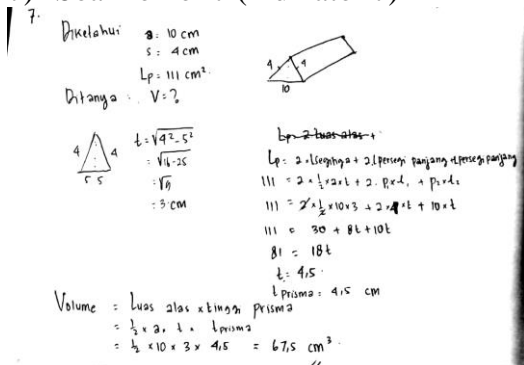 7.
Diketahui a: 10 cm
s: 4 cm
Lp: 111 cm².
Ditanya: V: ?
4 4
10
4 4
5 5
t = √4²-5²
= √16-25
= √9
: 3 cm
Lp= 2 luas alas +
Lp= 2 × L segitiga + 2 L persegi panjang + L persegi panjang
111 = 2 × ½ × a × t + 2. p₁ × l₁ + p₂ × l₂
111 = 2 × ½ × 10 × 3 + 2 × 4 × t + 10 × t
111 = 30 + 8t + 10t
81 = 18t
t = 4,5.
t prisma: 4,5 cm
Volume = Luas alas × tinggi prisma
= ½ × a. t × t prisma
= ½ × 10 × 3 × 4,5 = 67,5 cm³.